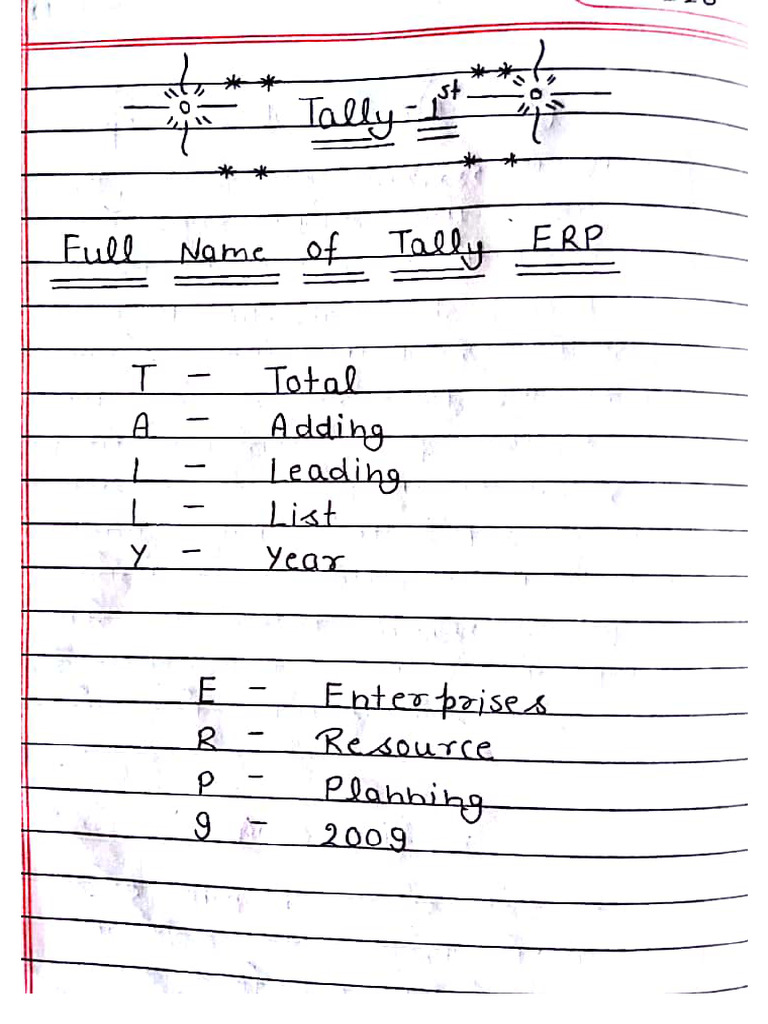 Tally - 1st
Full Name of Tally ERP
T - Total
A - Adding
L - Leading
L - List
Y - Year
E - Enterprises
R - Resource
P - Planning
9 - 2009